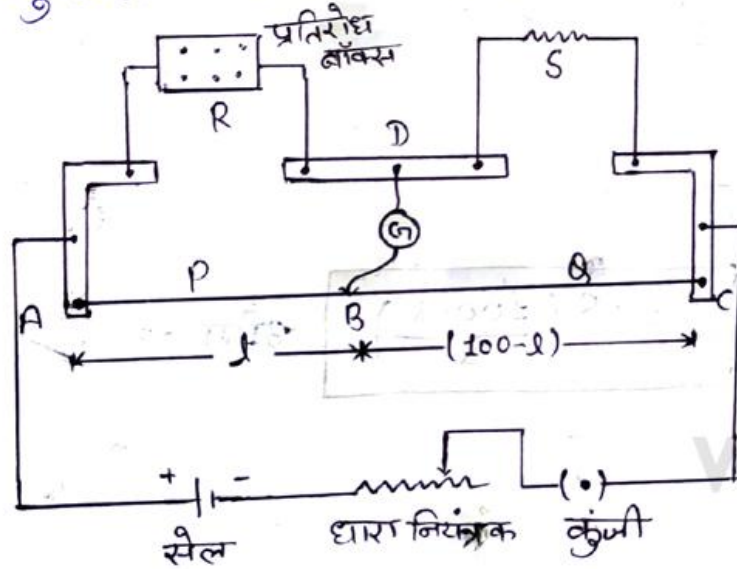 प्रतिरोध
बॉक्स
R
S
D
G
P
Q
A
B
C
l
(100-l)
+
-
सेल
धारा नियंत्रक
कुंजी